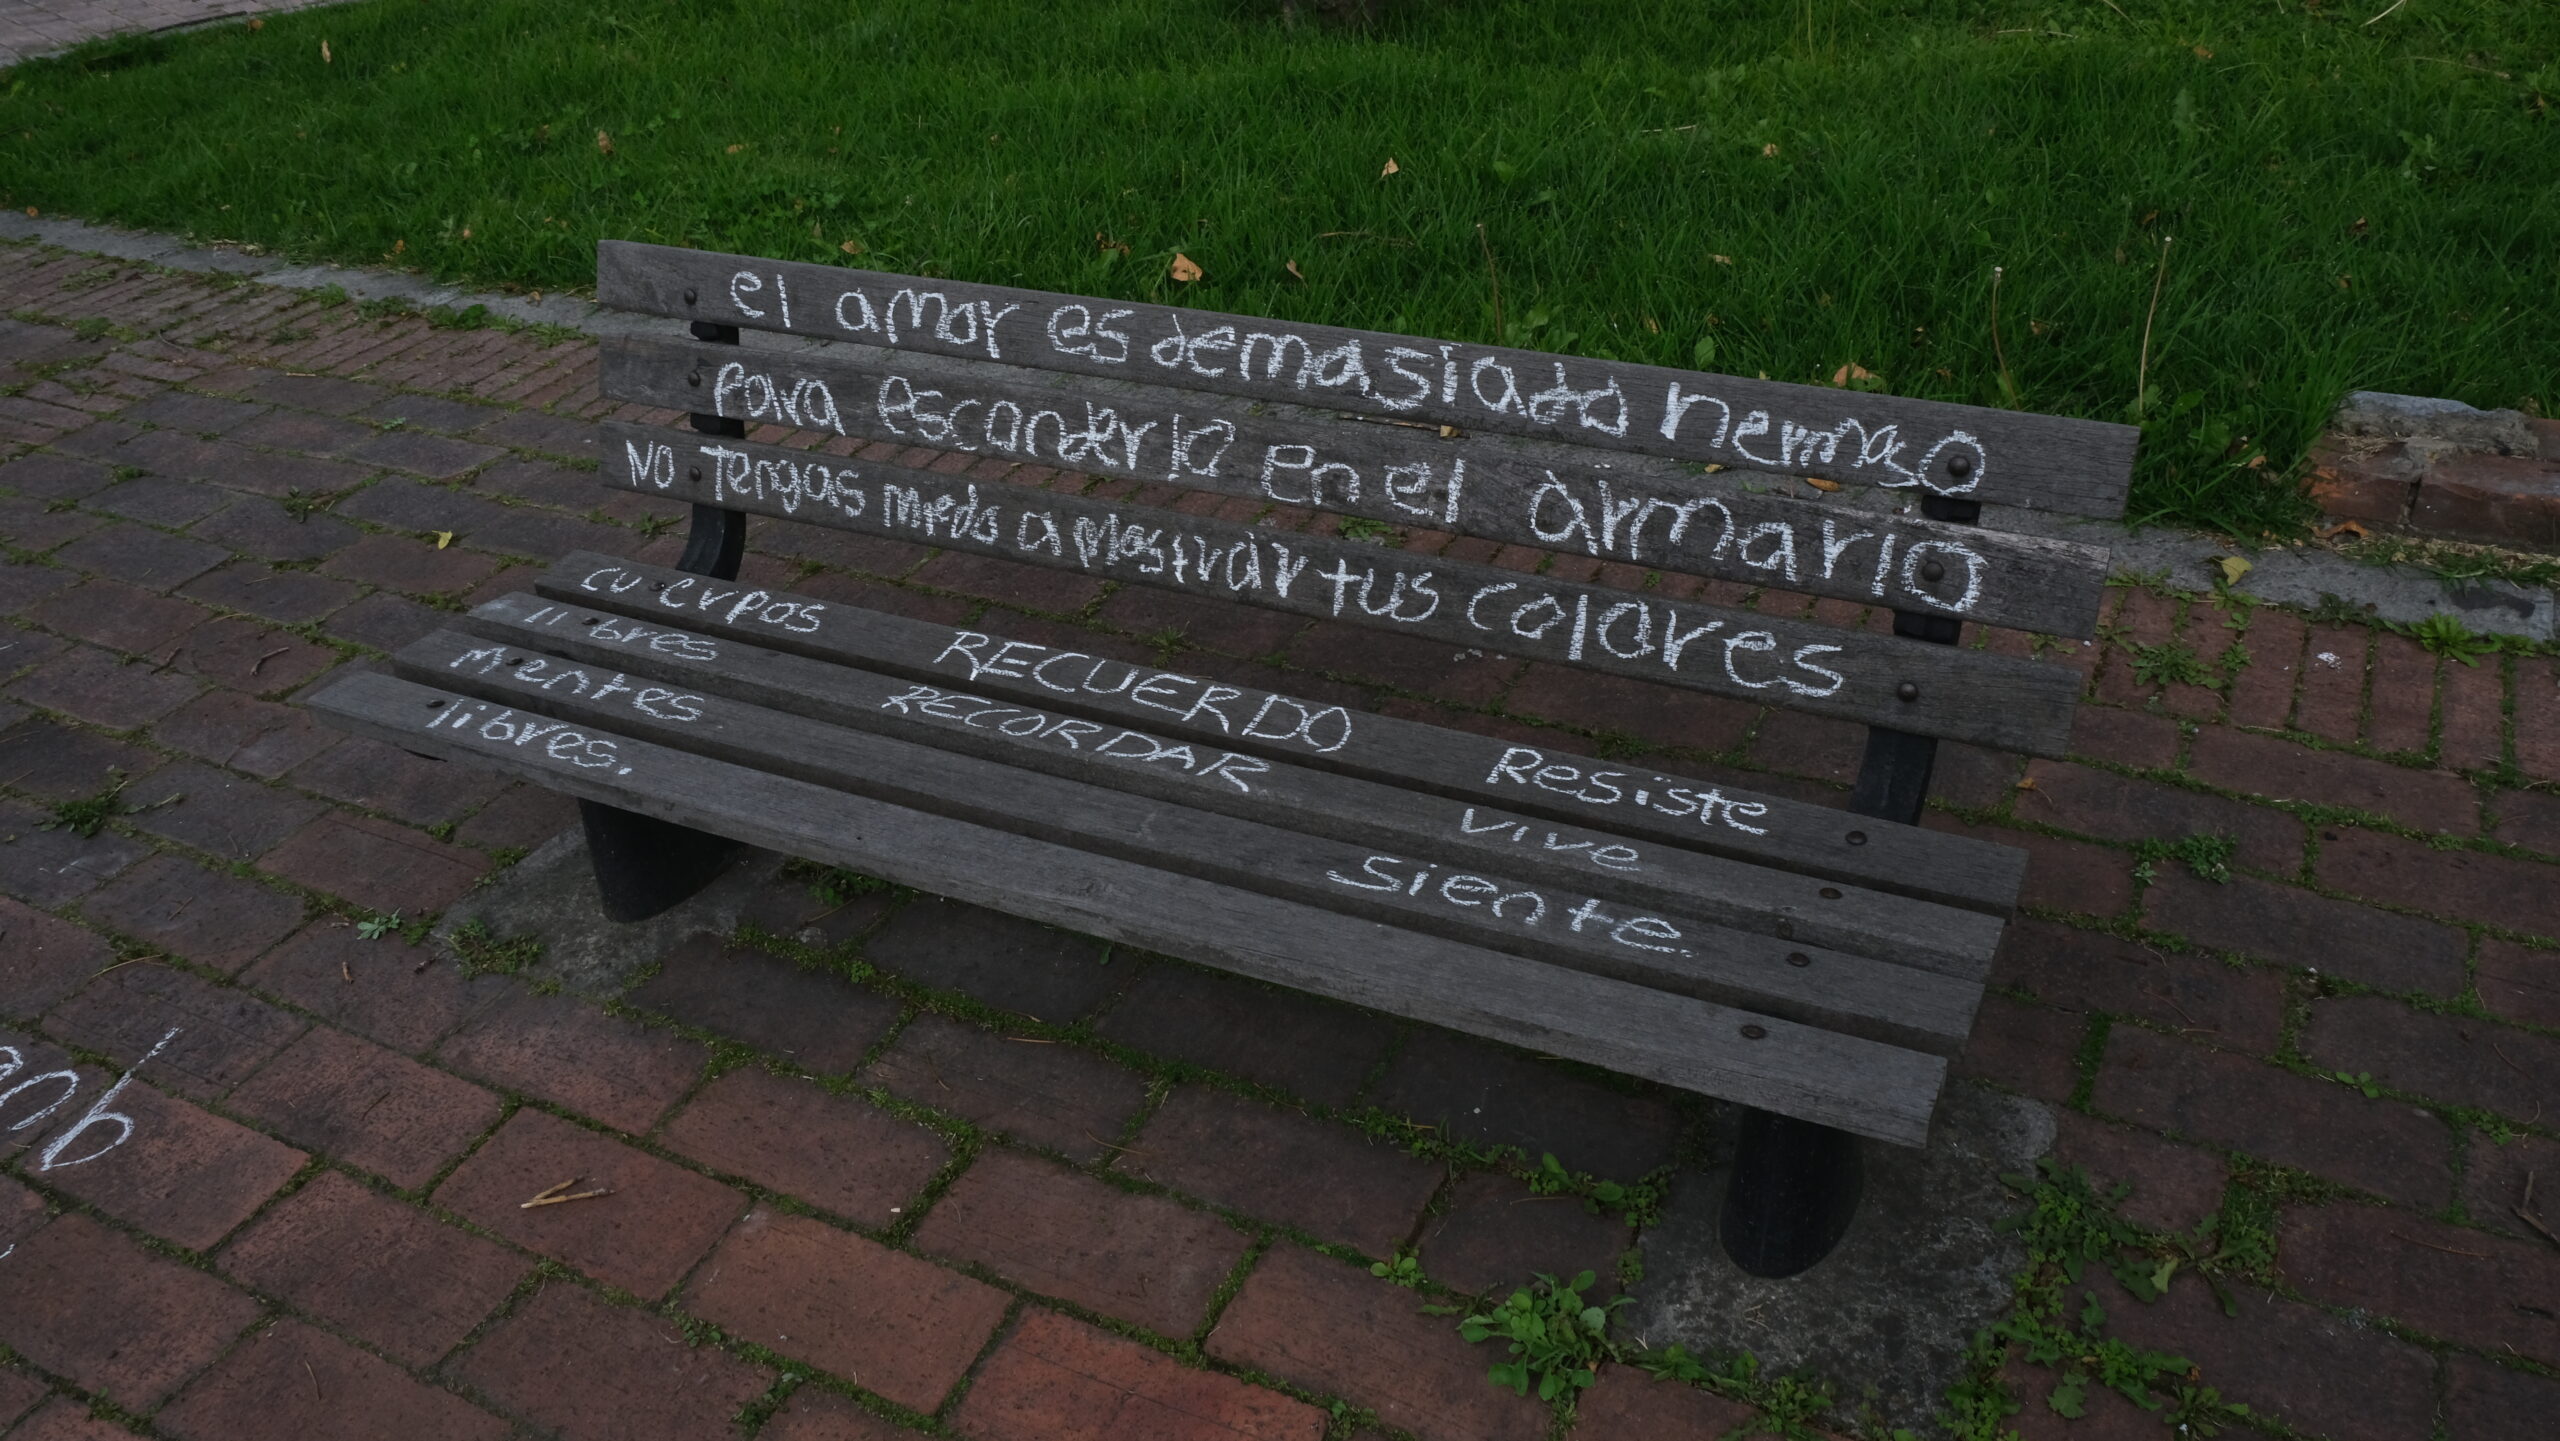 el amor es demasiado hermoso
para esconderlo en el armario
No Tengas miedo a mostrar tus colores
cu cuerpos
libres
mentes
libres.
RECUERDO
RECORDAR
Resiste
vive
siente.